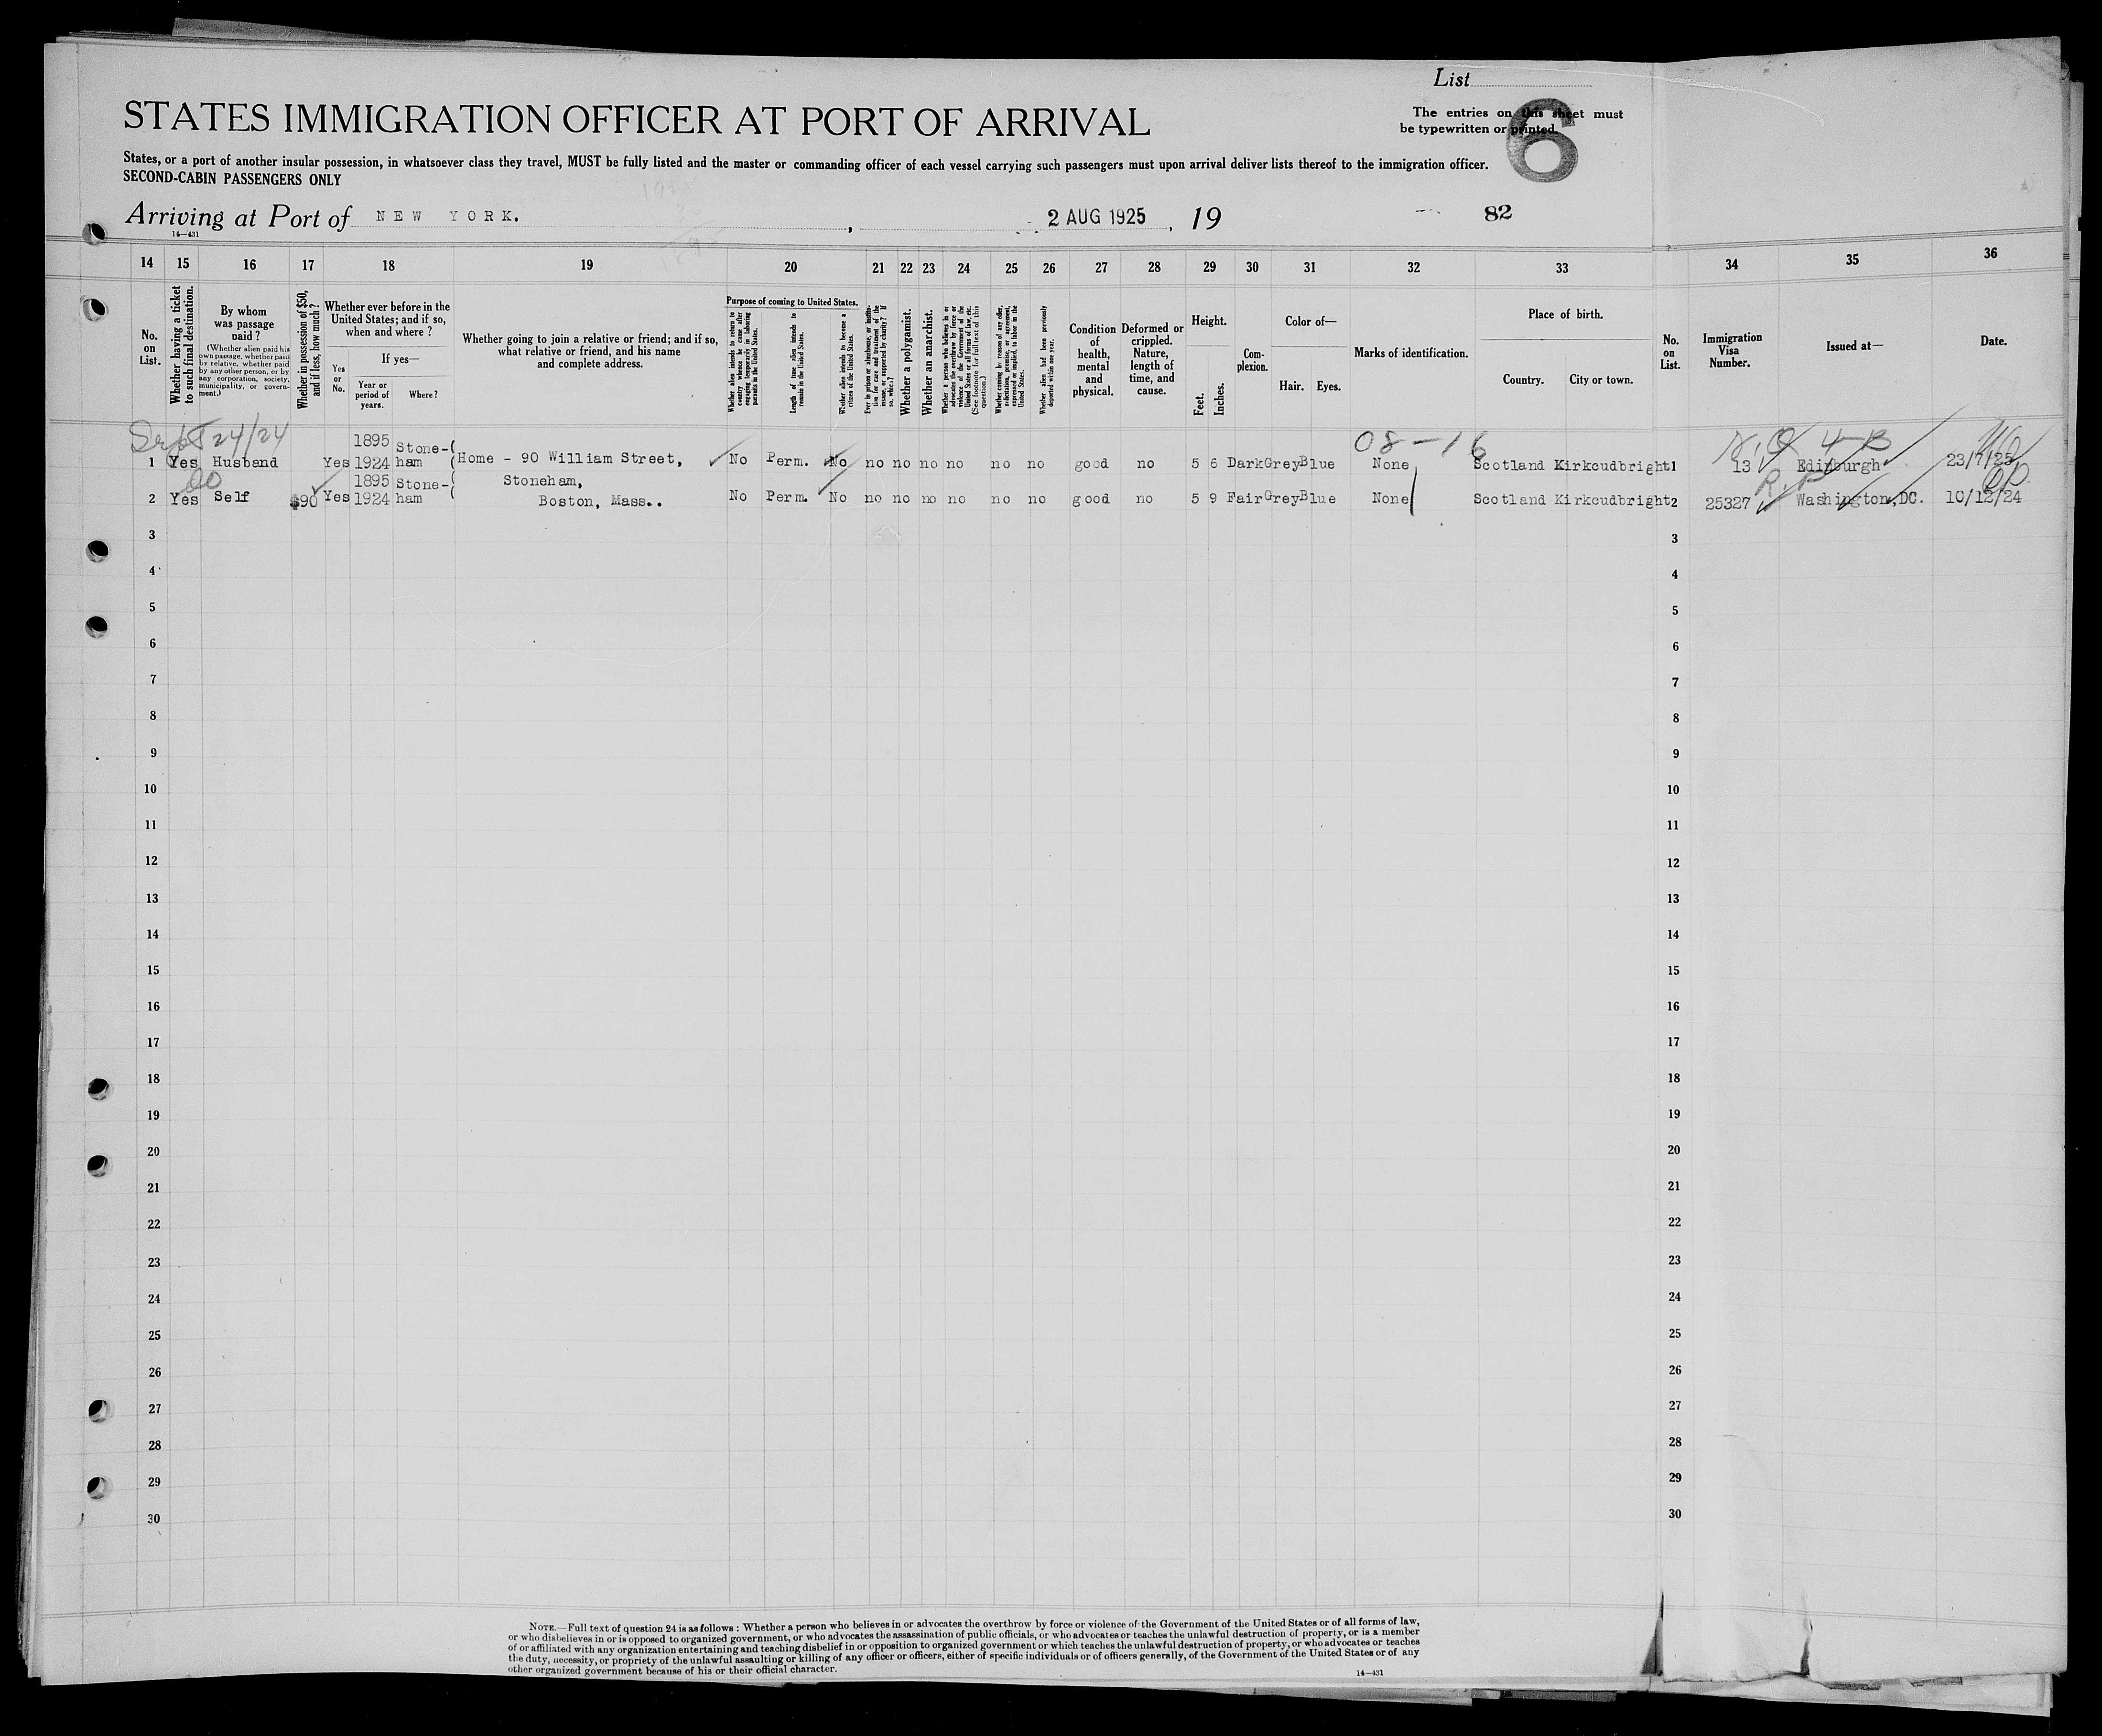 List
The entries on this sheet must
be typewritten or printed.
6
STATES IMMIGRATION OFFICER AT PORT OF ARRIVAL
States, or a port of another insular possession, in whatsoever class they travel, MUST be fully listed and the master or commanding officer of each vessel carrying such passengers must upon arrival deliver lists thereof to the immigration officer.
SECOND-CABIN PASSENGERS ONLY
Arriving at Port of NEW YORK. , 2 AUG 1925 , 19 82
14—431
14 15 16 17 18 19 20 21 22 23 24 25 26 27 28 29 30 31 32 33 34 35 36
No. on List.
Whether having a ticket to such final destination.
By whom was passage paid?
(Whether alien paid his own passage, whether paid by relative, whether paid by any other person, or by any corporation, society, municipality, or government.)
Whether in possession of $50, and if less, how much?
Whether ever before in the United States; and if so, when and where?
Yes or No.
If yes—
Year or period of years.
Where?
Whether going to join a relative or friend; and if so, what relative or friend, and his name and complete address.
Purpose of coming to United States.
Whether alien intends to return to country whence he came after engaging temporarily in laboring pursuits in the United States.
Length of time alien intends to remain in the United States.
Whether alien intends to become a citizen of the United States.
Ever in prison or almshouse, or institution for care and treatment of the insane, or supported by charity? If so, which?
Whether a polygamist.
Whether an anarchist.
Whether a person who believes in or advocates the overthrow by force or violence of the Government of the United States or all forms of law, etc. (See footnote for full text of this question.)
Whether coming by reason of any offer, solicitation, promise, or agreement, expressed or implied, to labor in the United States.
Whether alien had been previously deported within one year.
Condition of health, mental and physical.
Deformed or crippled. Nature, length of time, and cause.
Height.
Feet. Inches.
Complexion.
Color of—
Hair. Eyes.
Marks of identification.
Place of birth.
Country. City or town.
No. on List.
Immigration Visa Number.
Issued at—
Date.
Sept 24/24 08-16 4-B
1 Yes Husband Yes 1895 1924 Stone-ham Home - 90 William Street, No Perm. No no no no no no no good no 5 6 Dark Grey Blue None Scotland Kirkcudbright 1 13 Edinburgh 23/7/25
Stoneham,
2 Yes Self $90 Yes 1895 1924 Stone-ham Boston, Mass.. No Perm. No no no no no no no good no 5 9 Fair Grey Blue None Scotland Kirkcudbright 2 25327 Washington, DC. 10/12/24
3 3
4 4
5 5
6 6
7 7
8 8
9 9
10 10
11 11
12 12
13 13
14 14
15 15
16 16
17 17
18 18
19 19
20 20
21 21
22 22
23 23
24 24
25 25
26 26
27 27
28 28
29 29
30 30
NOTE.—Full text of question 24 is as follows: Whether a person who believes in or advocates the overthrow by force or violence of the Government of the United States or of all forms of law,
or who disbelieves in or is opposed to organized government, or who advocates the assassination of public officials, or who advocates or teaches the unlawful destruction of property, or is a member
of or affiliated with any organization entertaining and teaching disbelief in or opposition to organized government or which teaches the unlawful destruction of property, or who advocates or teaches
the duty, necessity, or propriety of the unlawful assaulting or killing of any officer or officers, either of specific individuals or of officers generally, of the Government of the United States or of any
other organized government because of his or their official character.
14—431